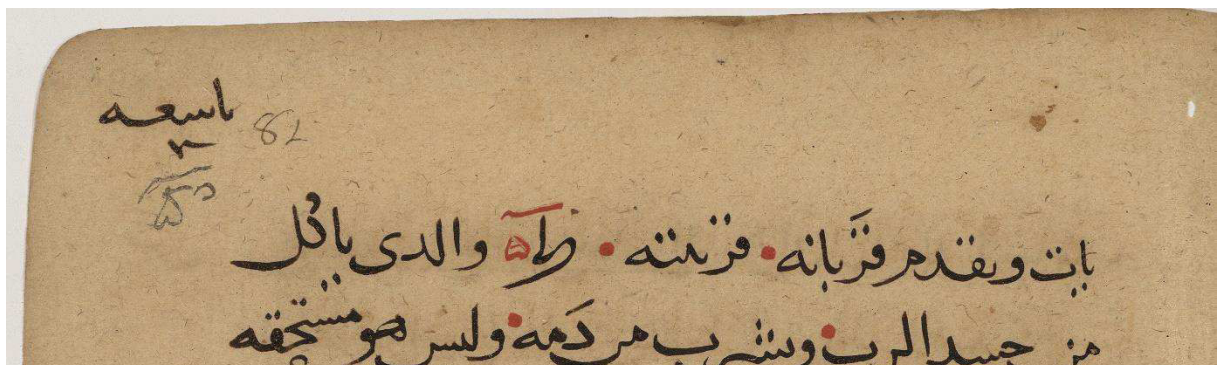 تاسعه
82
يات ويقدم قربانه • قرينته • والدى ياكل
من جسد الرب ويشرب من دمه • وليس هو مستحقه